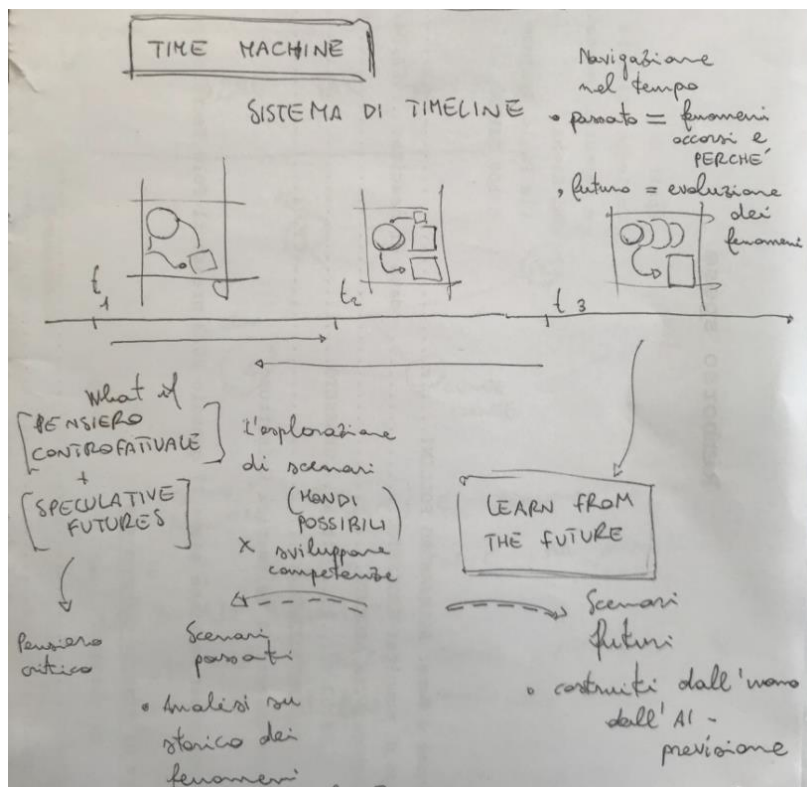 TIME MACHINE
SISTEMA DI TIMELINE
Navigazione
nel tempo
• passato = fenomeni
occorsi e
PERCHE'
• futuro = evoluzione
dei
fenomeni
t1
t2
t3
What if
[PENSIERO
CONTROFATTUALE]
+
[SPECULATIVE
FUTURES]
Pensiero
critico
L'esplorazione
di scenari
(MONDI
POSSIBILI)
x sviluppare
competenze
LEARN FROM
THE FUTURE
Scenari
passati
• Analisi su
storico dei
fenomeni
Scenari
futuri
• costruiti dall'uomo
dall'AI -
previsione